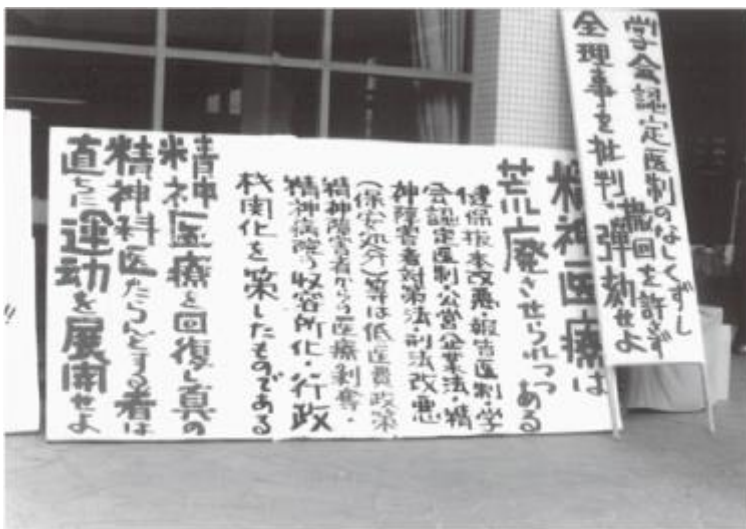 学会認定医制のなしくずし
撤回を許さず
全理事を批判・弾劾せよ
精神医療は
荒廃させられつつある
健保抜本改悪・報告医制・学
会認定医制・公営企業法・精
神障害者対策法・刑法改悪
（保安処分）等は低医費政策
精神障害者からの医療剥奪・
精神病院の収容所化・行政
機関化を策したものである
精神医療を回復し真の
精神科医たらんとする者は
直ちに運動を展開せよ
!!